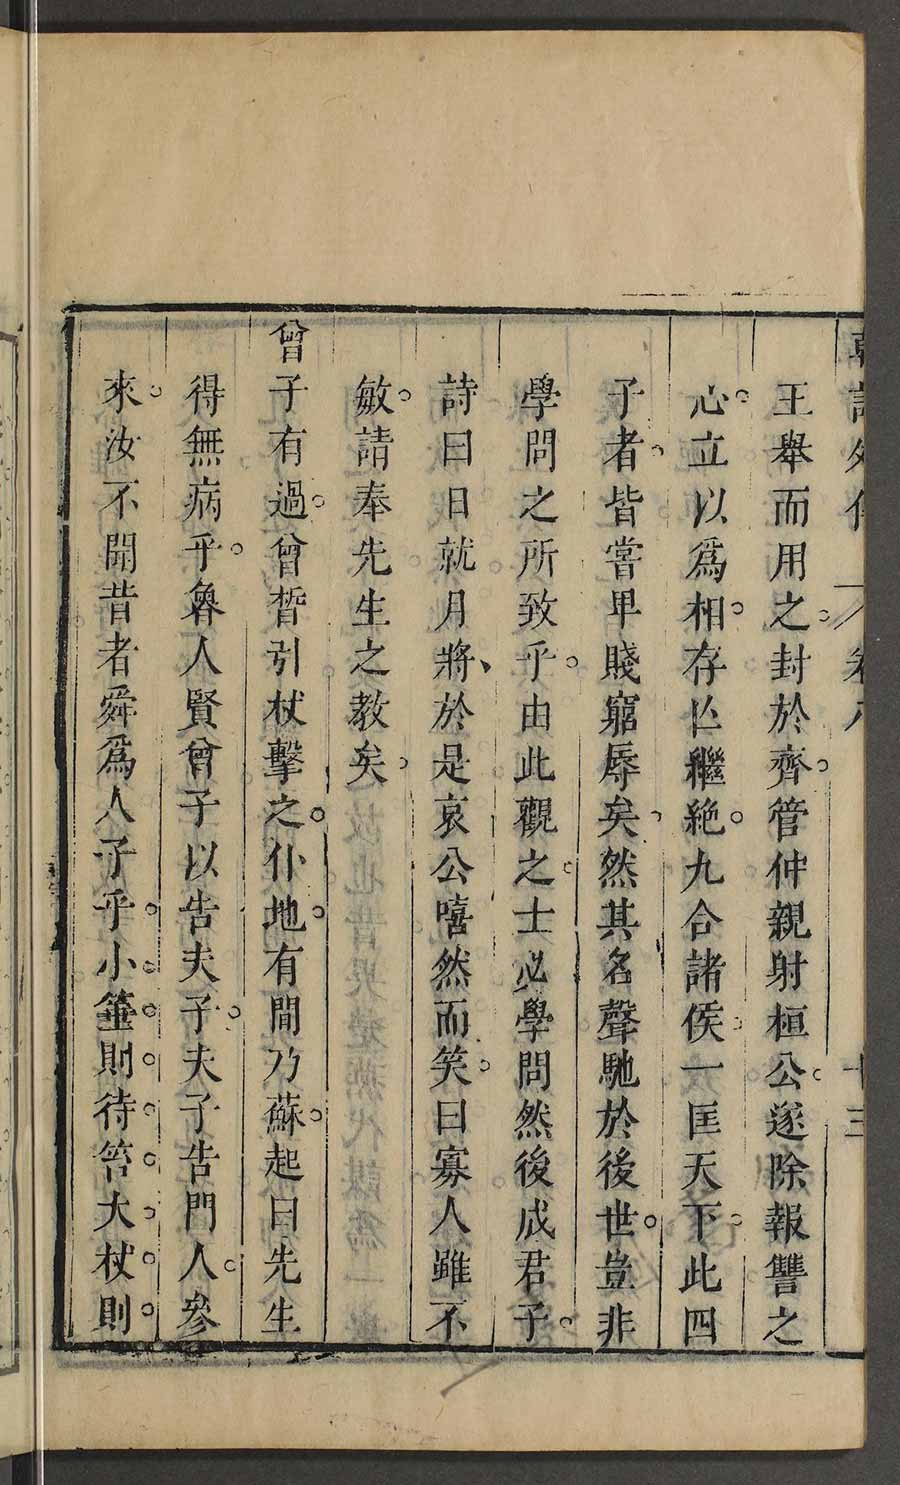 韓詩外傳 卷八 十三
王舉而用之。封於齊。管仲親射桓公。遂除報讐之
心。立以爲相。存亾繼絶。九合諸侯。一匡天下。此四
子者。皆嘗卑賤窮辱矣。然其名聲馳於後世。豈非
學問之所致乎。由此觀之。士必學問然後成君子。
詩曰日就月將、於是哀公嘻然而笑。曰寡人雖不
敏。請奉先生之教矣。
曾子有過。曾晳引杖擊之。仆地。有間乃蘇。起曰先生
得無病乎。魯人賢曾子以告夫子。夫子告門人。參
來。汝不聞昔者舜爲人子乎。小箠則待笞。大杖則